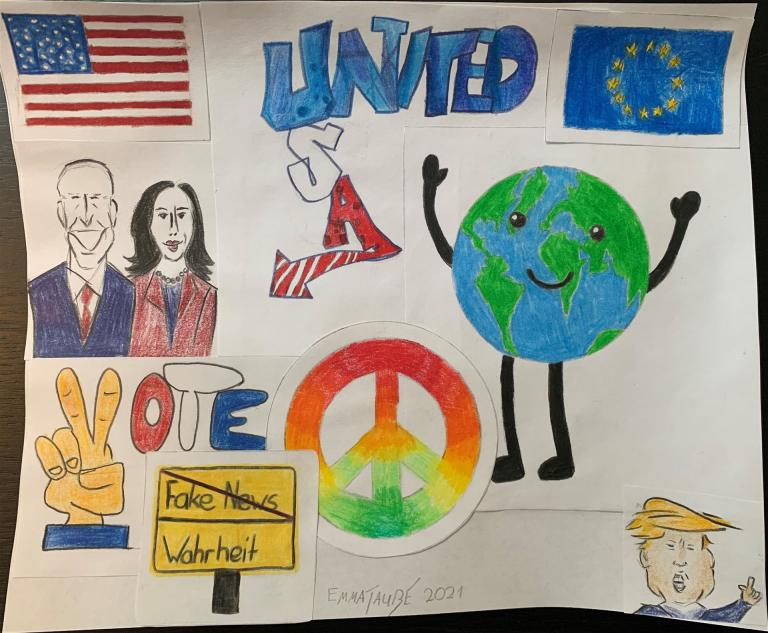 UNITED
S
A
VOTE
Fake News
Wahrheit
EMMA TAUBE 2021